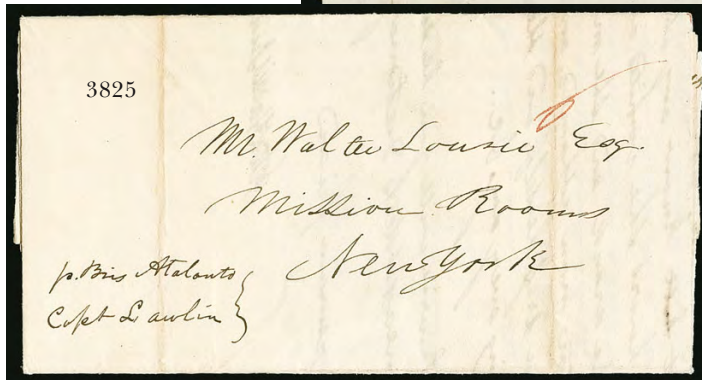 3825
Mr. Walter Lousie Esq.
Mission Rooms
New York
p. Brig Atalanta
Capt Lawlin